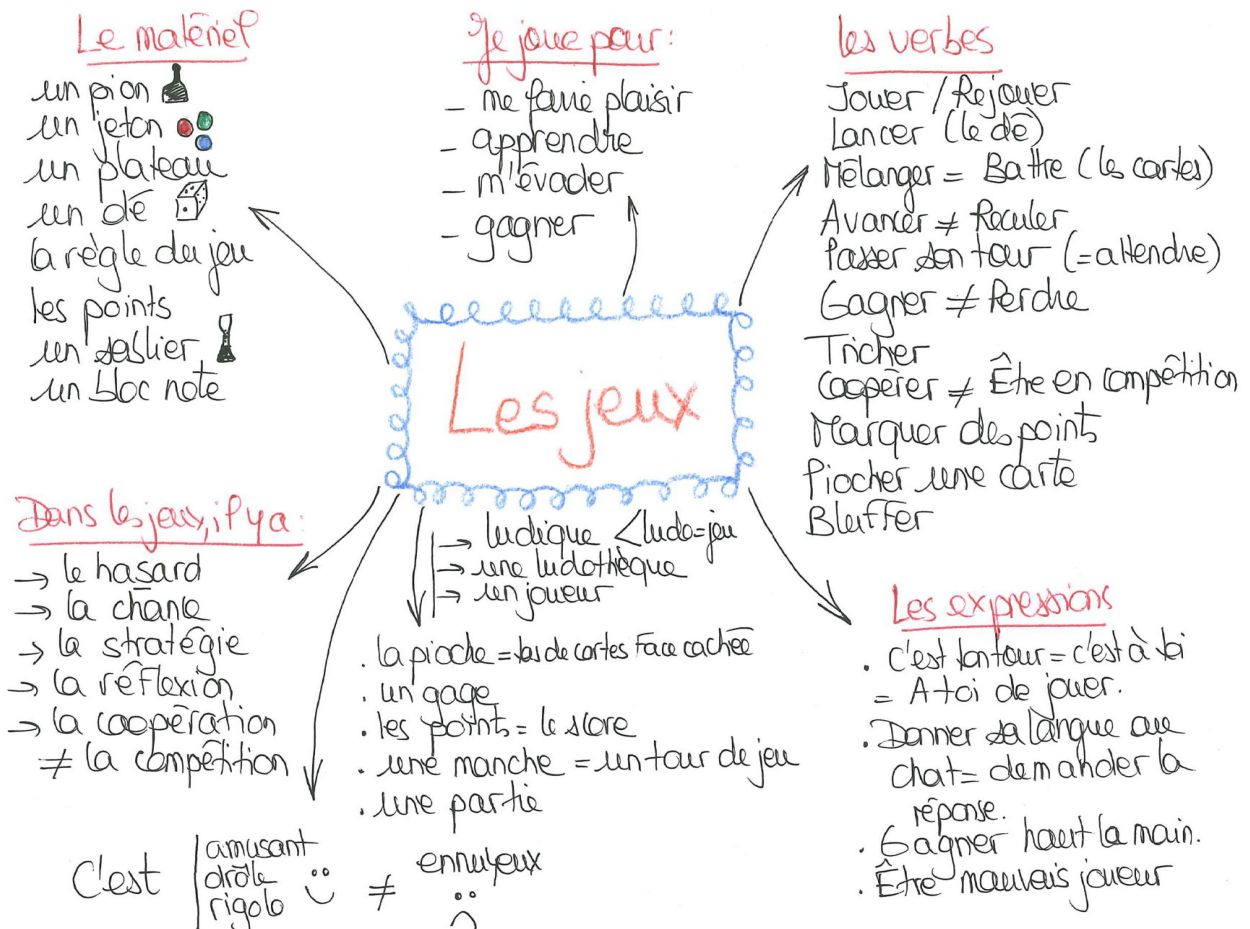 Le matériel
un pion
un jeton
un plateau
un dé
la règle du jeu
les points
un sablier
un bloc note
Je joue pour :
- me faire plaisir
- apprendre
- m'évader
- gagner
les verbes
Jouer / Rejouer
Lancer (le dé)
Mélanger = Battre (les cartes)
Avancer ≠ Reculer
Passer son tour (= attendre)
Gagner ≠ Perdre
Tricher
Coopérer ≠ Être en compétition
Marquer des points
Piocher une carte
Bluffer
Les jeux
Dans les jeux, il y a :
→ le hasard
→ la chance
→ la stratégie
→ la réflexion
→ la coopération
≠ la compétition
→ ludique < ludo = jeu
→ une ludothèque
→ un joueur
. la pioche = tas de cartes face cachée
. un gage
. les points = le score
. une manche = un tour de jeu
. une partie
Les expressions
. C'est ton tour = c'est à toi
= A toi de jouer.
. Donner sa langue au
chat = demander la
réponse.
. Gagner haut la main.
. Être mauvais joueur
C'est
amusant
drôle
rigolo
≠ ennuyeux